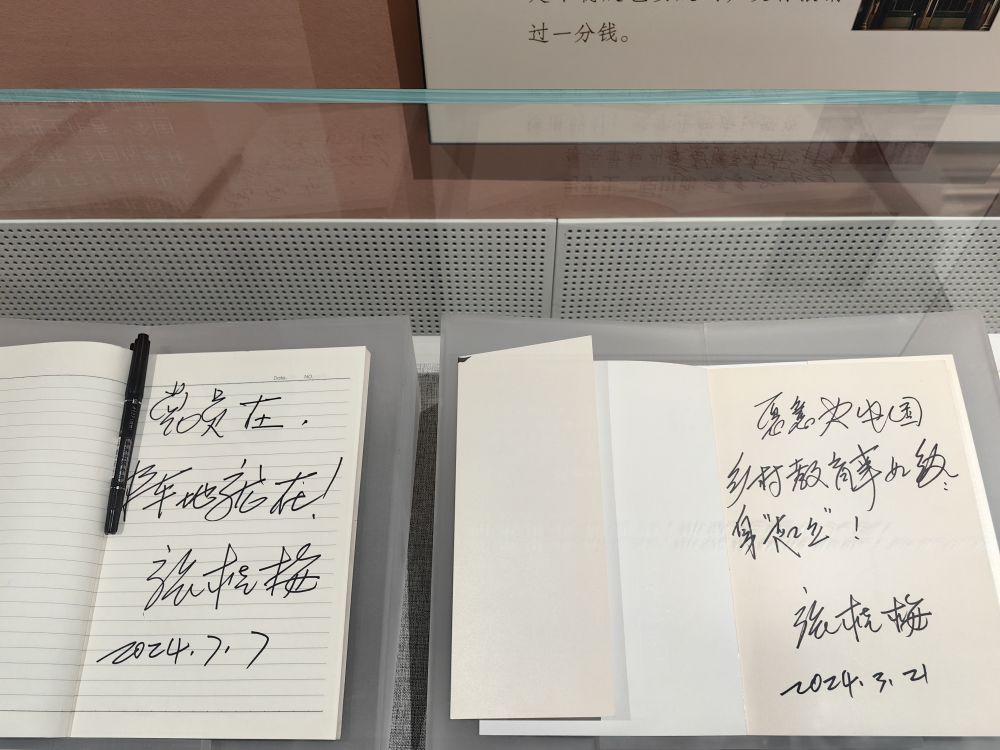 过一分钱。
Date. NO.
党员在，
阵地就在！
张桂梅
2024.7.7
愿意为中国
乡村教育事业终
身
张桂梅
2024.3.21